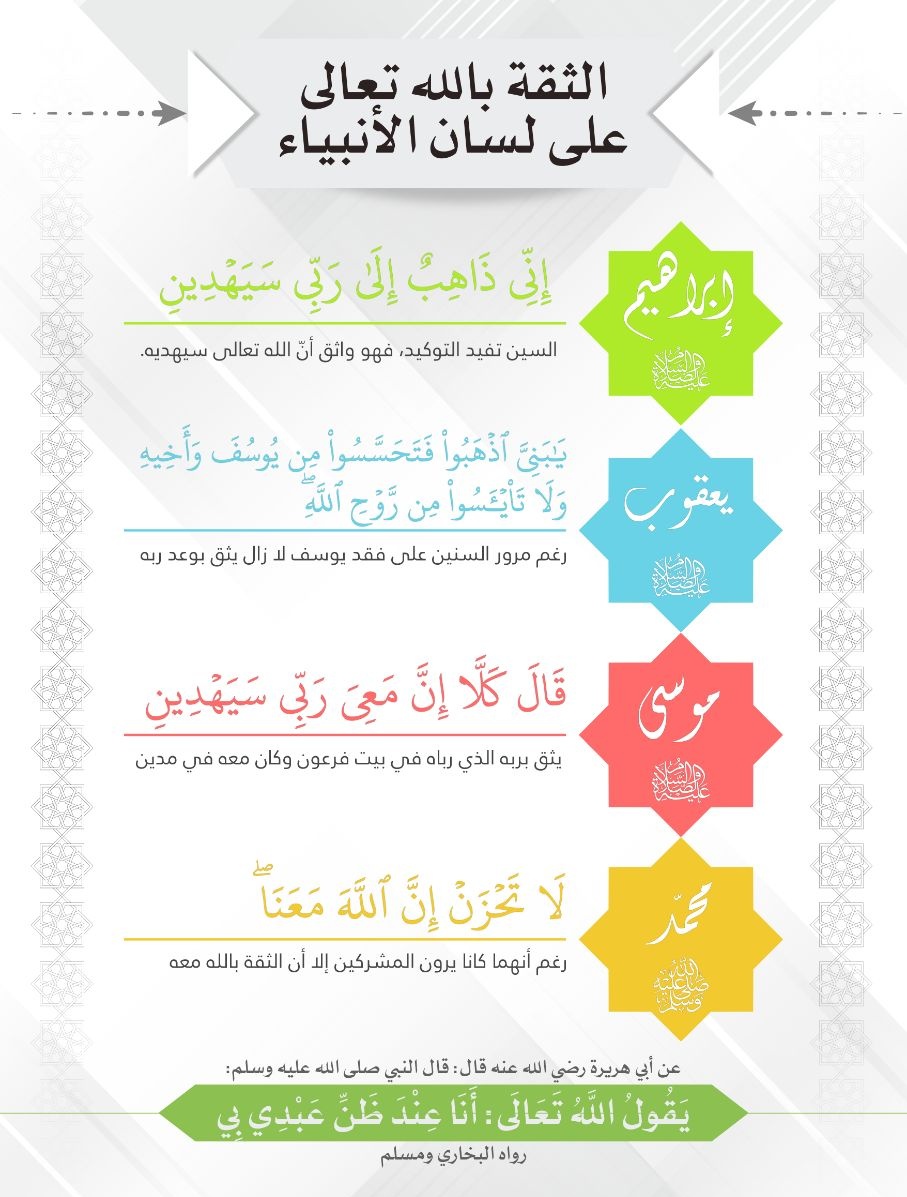 الثقة بالله تعالى
على لسان الأنبياء
إبراهيم
عليه الصلاة والسلام
إِنِّي ذَاهِبٌ إِلَىٰ رَبِّي سَيَهْدِينِ
السين تفيد التوكيد، فهو واثق أنّ الله تعالى سيهديه.
يعقوب
عليه الصلاة والسلام
يَٰبَنِيَّ ٱذْهَبُوا۟ فَتَحَسَّسُوا۟ مِن يُوسُفَ وَأَخِيهِ
وَلَا تَا۟يْـَٔسُوا۟ مِن رَّوْحِ ٱللَّهِۖ
رغم مرور السنين على فقد يوسف لا زال يثق بوعد ربه
موسى
عليه الصلاة والسلام
قَالَ كَلَّا إِنَّ مَعِيَ رَبِّي سَيَهْدِينِ
يثق بربه الذي رباه في بيت فرعون وكان معه في مدين
محمّد
صلى الله عليه وسلم
لَا تَحْزَنْ إِنَّ ٱللَّهَ مَعَنَاۖ
رغم أنهما كانا يرون المشركين إلا أن الثقة بالله معه
عن أبي هريرة رضي الله عنه قال: قال النبي صلى الله عليه وسلم:
يَقُولُ اللَّهُ تَعَالَى: أَنَا عِنْدَ ظَنِّ عَبْدِي بِي
رواه البخاري ومسلم